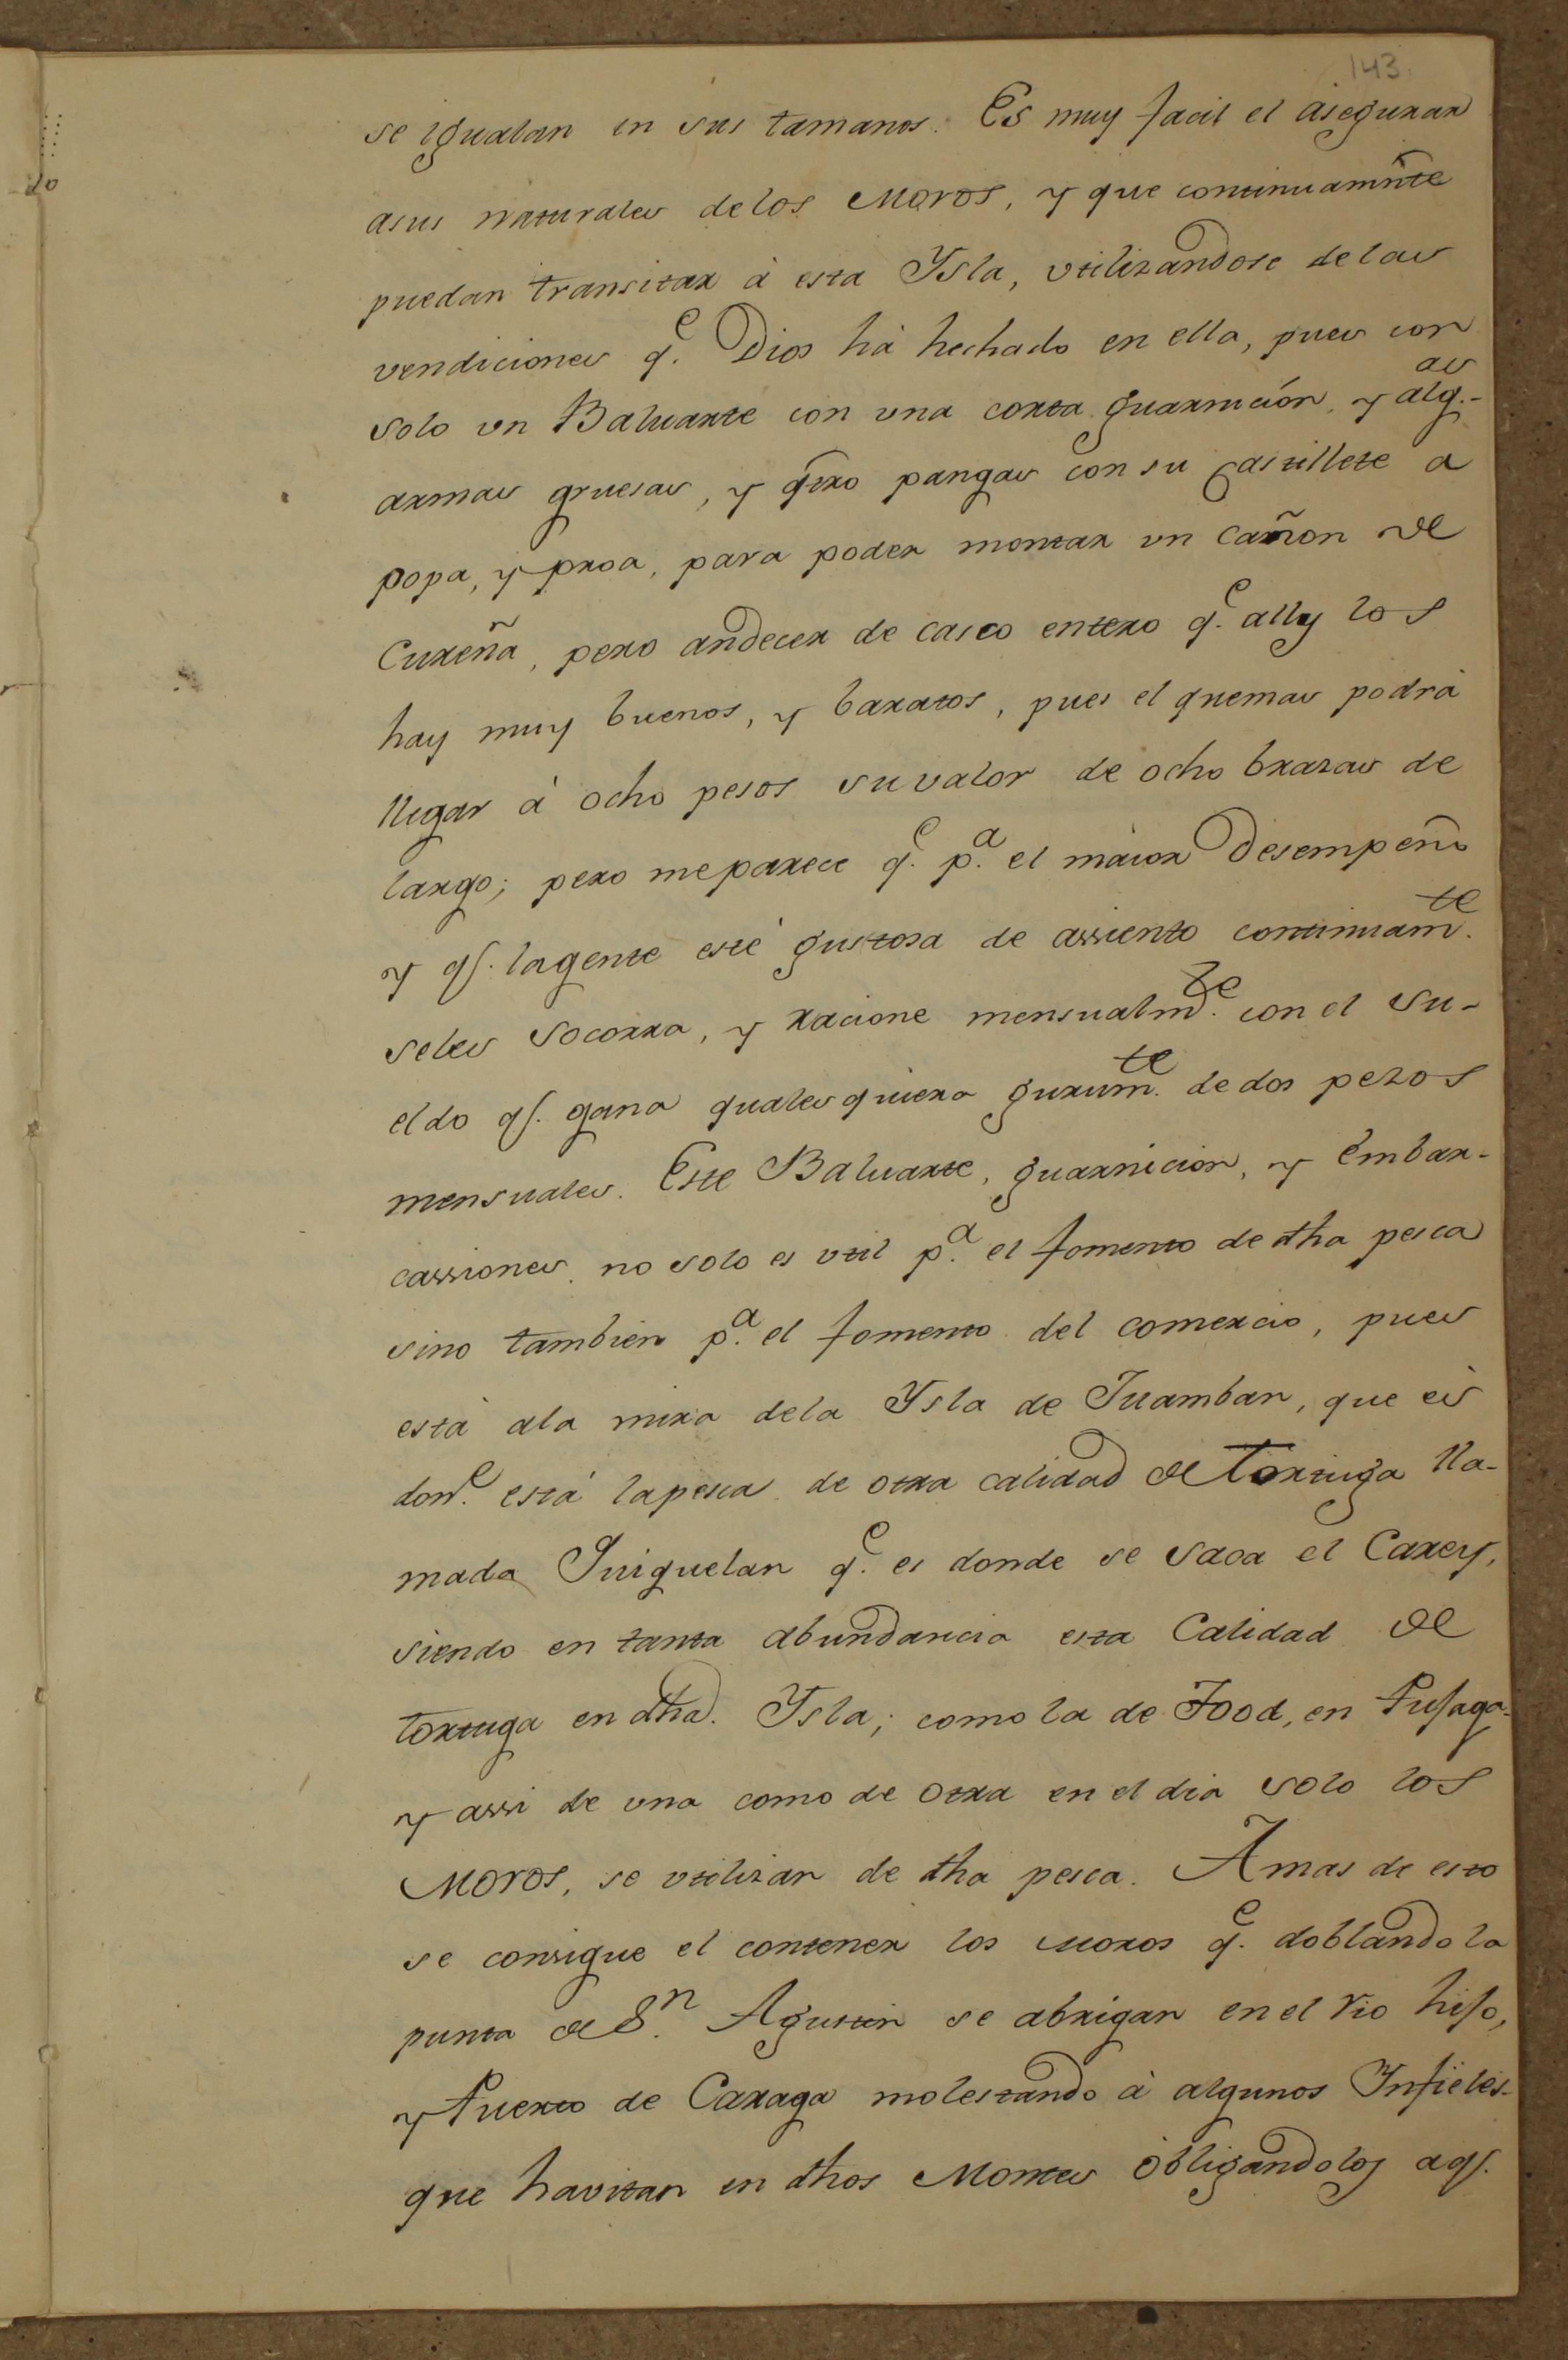 143.
se igualan en sus tamanos. Es muy facil el asegurar
asus naturales delos Moros, y que continuamnte
puedan transitar à esta Ysla, vtilizandose delas
vendiciones q.e Dios hà hechado en ella, pues con
solo un Baluarte con una corta guarnicion, y alg.as
armas gruesas, y qtro pangas con su Castillete a
popa, y proa, para poder montar un cañon de
Cureña, pero andecer de casco entero q.e ally los
hay muy buenos, y baratos, pues el quemas podrà
llegar à ocho pesos suvalor de ocho brazas de
largo; pero meparece q.e p.a el maior Desempeño
y q.e lagente esté gustosa de assiento continuam.te
seles socorra, y racione mensualm.te con el su-
eldo q.e gana qualesquiera gurum.te de dos pezos
mensuales. Este Baluarte, guarnicion, y Embar-
cassiones no solo es vtil p.a el fomento de dha pesca
sino tambien p.a el fomento del comercio, pues
està ala mira dela Ysla de Juamban, que es
don.e està lapesca de otra calidad de Tortuga lla-
mada Quiquelan q.e es donde se saca el Carey,
siendo en tanta abundancia esta Calidad de
tortuga en dha. Ysla; como la de Food, en Pusaga-
y assi de una como de otra en el dia solo los
Moros, se vtilizan de dha pesca. Amas de esto
se consigue el contener los Moros q.e doblando la
punta de S.n Agustin se abrigan en el rio hijo,
y Puerto de Caraga molestando à algunos Infieles-
que havitan en dhos Montes obligandolos aq.e